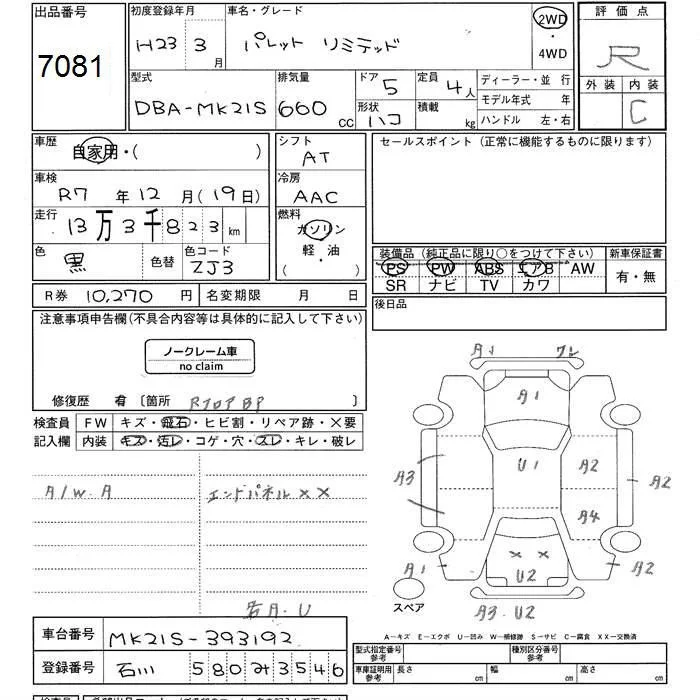 出品番号 7081
初度登録年月 H23 3月
車名・グレード パレット リミテッド
2WD・4WD
評価点 R
外装 内装 C
型式 DBA-MK21S
排気量 660 CC
ドア 5
形状 ハコ
定員 4人
積載 kg
ディーラー・並行
モデル年式 年
ハンドル 左・右
車歴 自家用・( )
シフト AT
セールスポイント (正常に機能するものに限ります)
車検 R7年12月(19日)
冷房 AAC
走行 13万3千823km
燃料 ガソリン 軽・油 ( )
色 黒 色替
色コード ZJ3
装備品 (純正品に限り○をつけて下さい)
PS PW ABS エアB AW
SR ナビ TV カワ
新車保証書 有・無
R券 10,270円 名変期限 月 日
後日品
注意事項申告欄(不具合内容等は具体的に記入して下さい)
ノークレーム車
no claim
修復歴 有 〔箇所 RフロアBP 〕
検査員記入欄
FW キズ・飛石・ヒビ割・リペア跡・×要
内装 キズ・汚レ・コゲ・穴・スレ・キレ・破レ
A/W.A エンドパネル××
若A.U
A1 ワレ
A1
A3 U1 A2 A2
A4
A1 ×× U2 A1
スペア A3.U2
A-キズ E-エクボ U-凹み W-補修跡 S-サビ C-腐食 XX-交換済
車台番号 MK21S-393192
登録番号 石川 580 み 3546
型式指定番号 参考 種類区分番号 参考
車庫証明用 参考 長さ cm 幅 cm 高さ cm